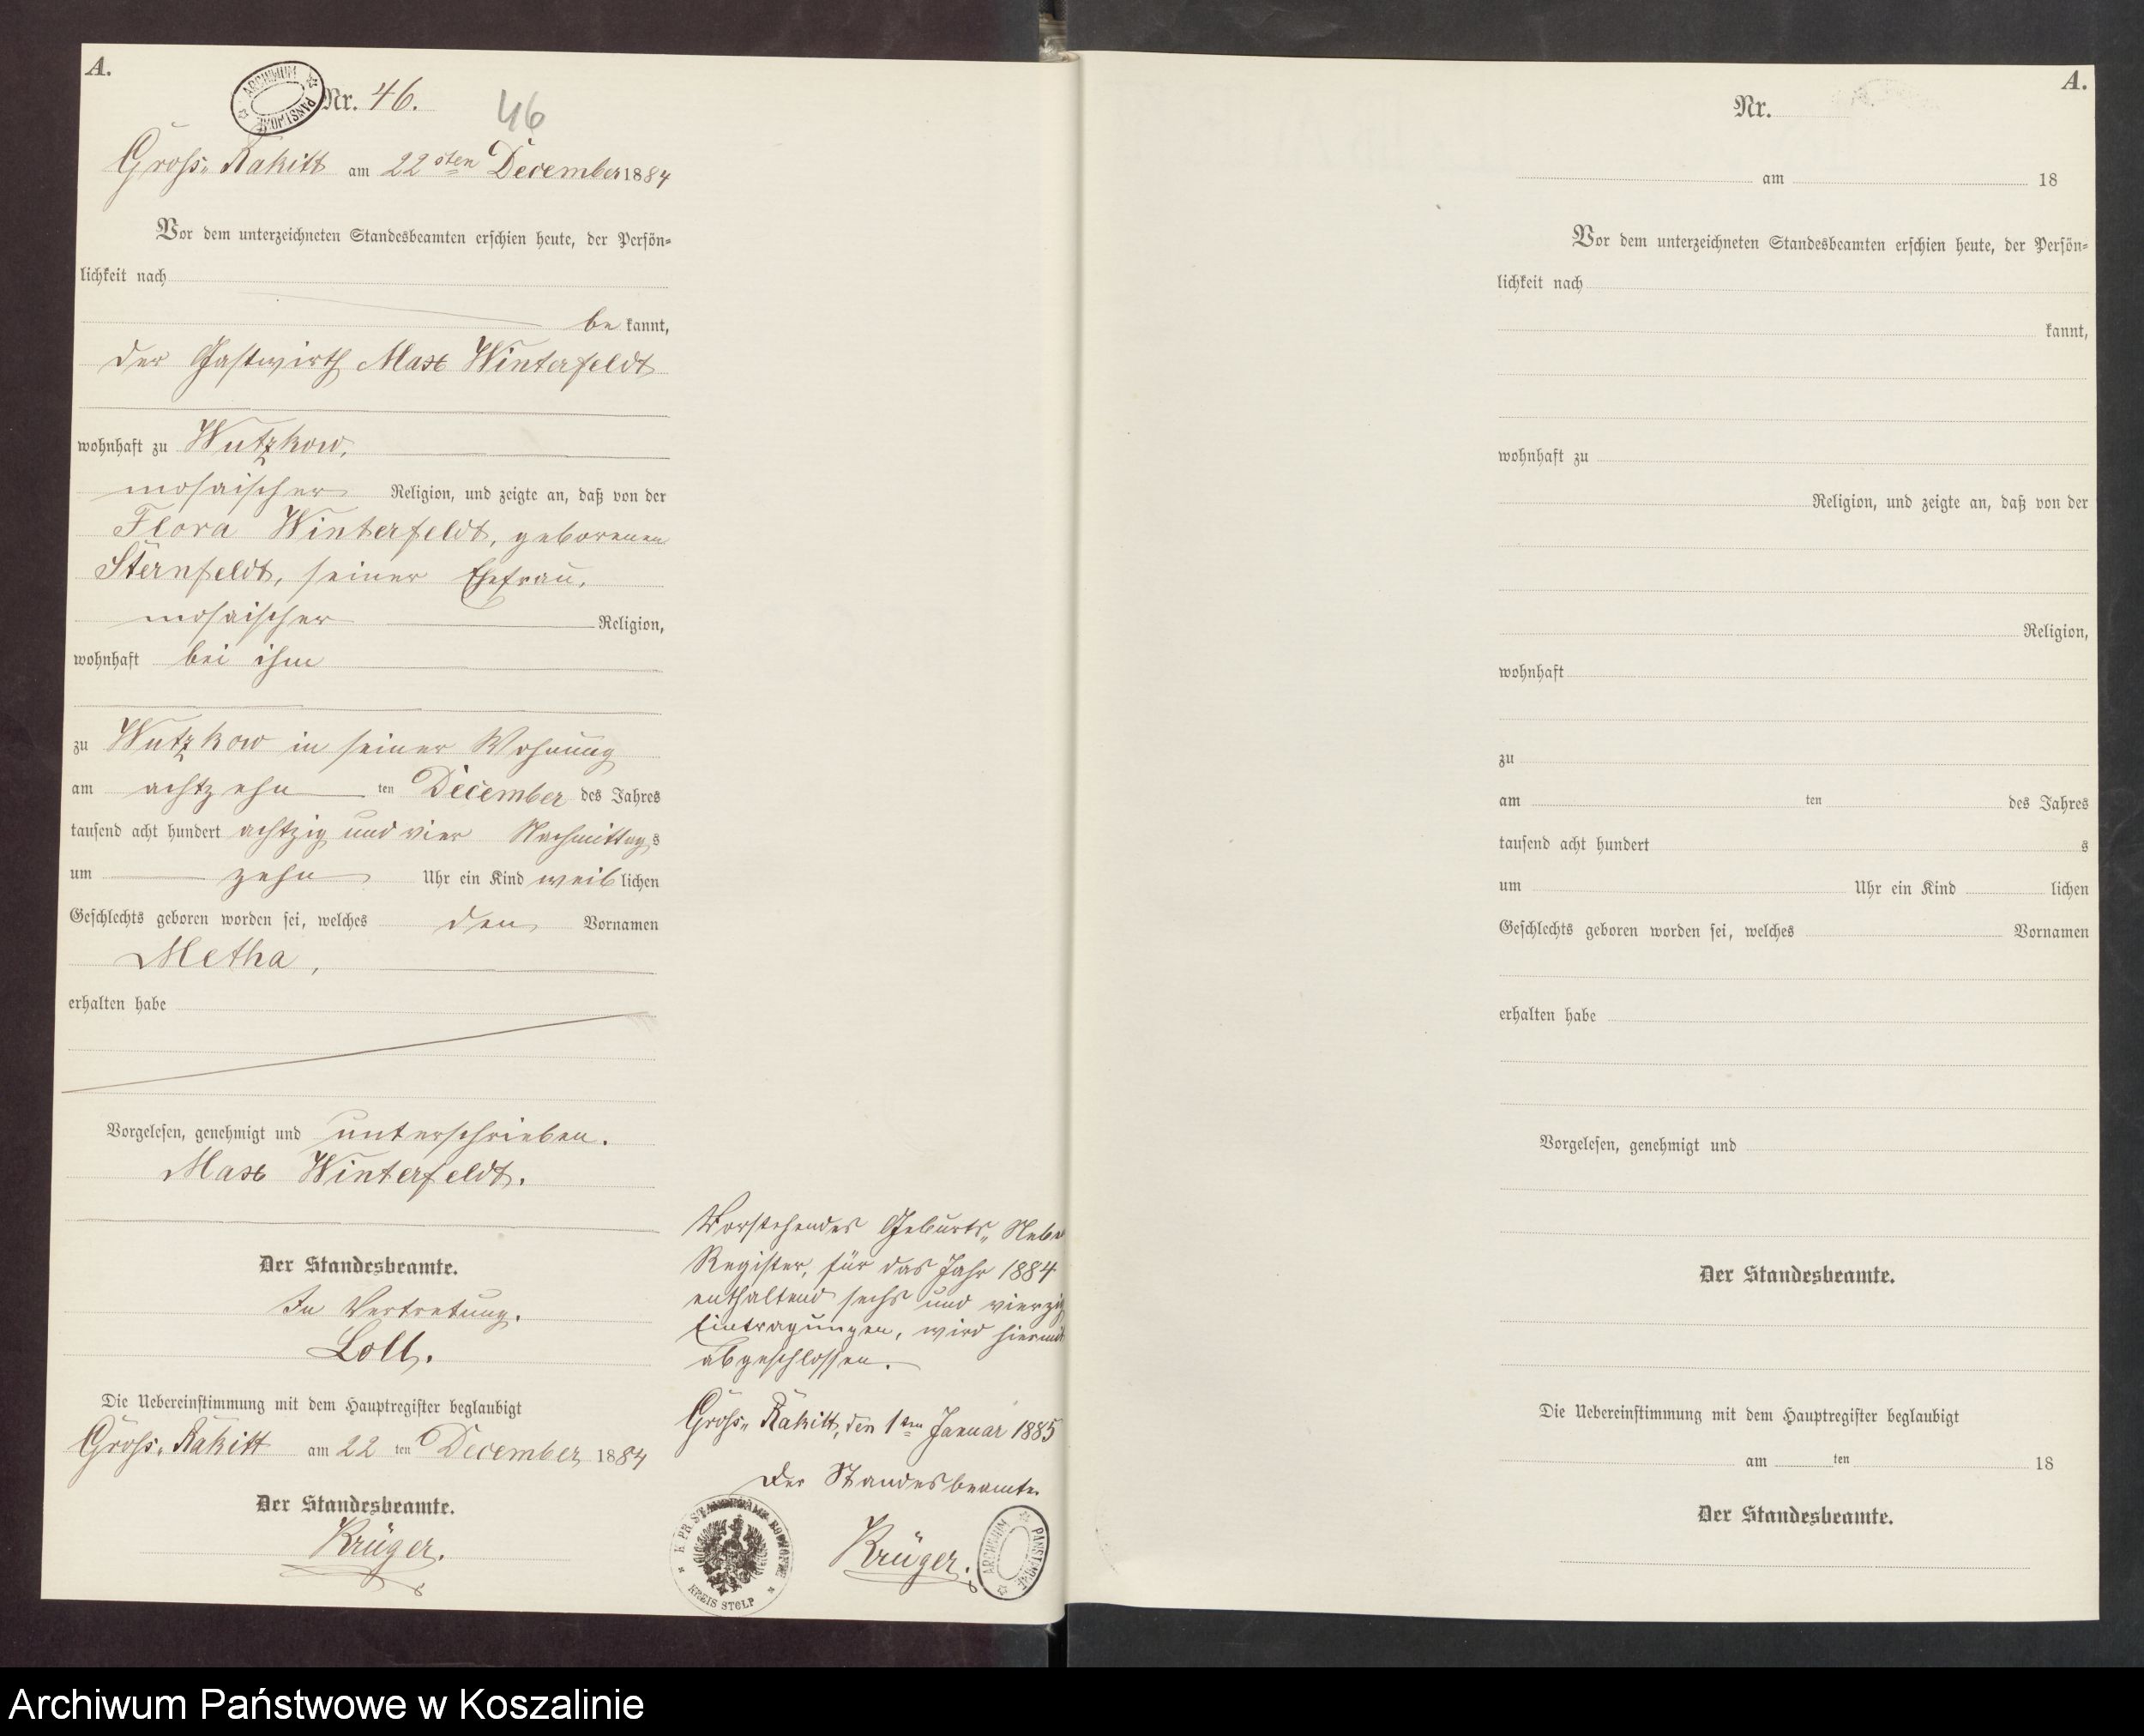 A.
ARCHIWUM PAŃSTWOWE
Nr. 46.
46
Gross„ Rakitt am 22 sten December 1884
Vor dem unterzeichneten Standesbeamten erschien heute, der Persön-
lichkeit nach
be kannt,
der Gastwirth Max Winterfeldt
wohnhaft zu Wutzkow,
mosaischer Religion, und zeigte an, daß von der
Flora Winterfeldt, geborenen
Sternfeldt, seiner Ehefrau,
mosaischer Religion,
wohnhaft bei ihm
zu Wutzkow in seiner Wohnung
am achtzehn ten December des Jahres
tausend acht hundert achtzig und vier Nachmittag s
um zehn Uhr ein Kind weib lichen
Geschlechts geboren worden sei, welches den Vornamen
Metha,
erhalten habe
Vorgelesen, genehmigt und unterschrieben.
Max Winterfeldt.
Der Standesbeamte.
In Vertretung.
Loll.
Die Uebereinstimmung mit dem Hauptregister beglaubigt
Gross„ Rakitt am 22 ten December 1884
Der Standesbeamte.
Krüger.
Vorstehendes Geburts„ Neben
Register, für das Jahr 1884
enthaltend sechs und vierzig
Eintragungen, wird hiermit
abgeschlossen.
Gross„ Rakitt, den 1ten Januar 1885
Der Standesbeamte.
K. PR. STANDESAMT
KREIS STOLP
Krüger.
ARCHIWUM PAŃSTWOWE
A.
Nr.
am 18
Vor dem unterzeichneten Standesbeamten erschien heute, der Persön-
lichkeit nach
kannt,
wohnhaft zu
Religion, und zeigte an, daß von der
Religion,
wohnhaft
zu
am ten des Jahres
tausend acht hundert s
um Uhr ein Kind lichen
Geschlechts geboren worden sei, welches Vornamen
erhalten habe
Vorgelesen, genehmigt und
Der Standesbeamte.
Die Uebereinstimmung mit dem Hauptregister beglaubigt
am ten 18
Der Standesbeamte.
Archiwum Państwowe w Koszalinie